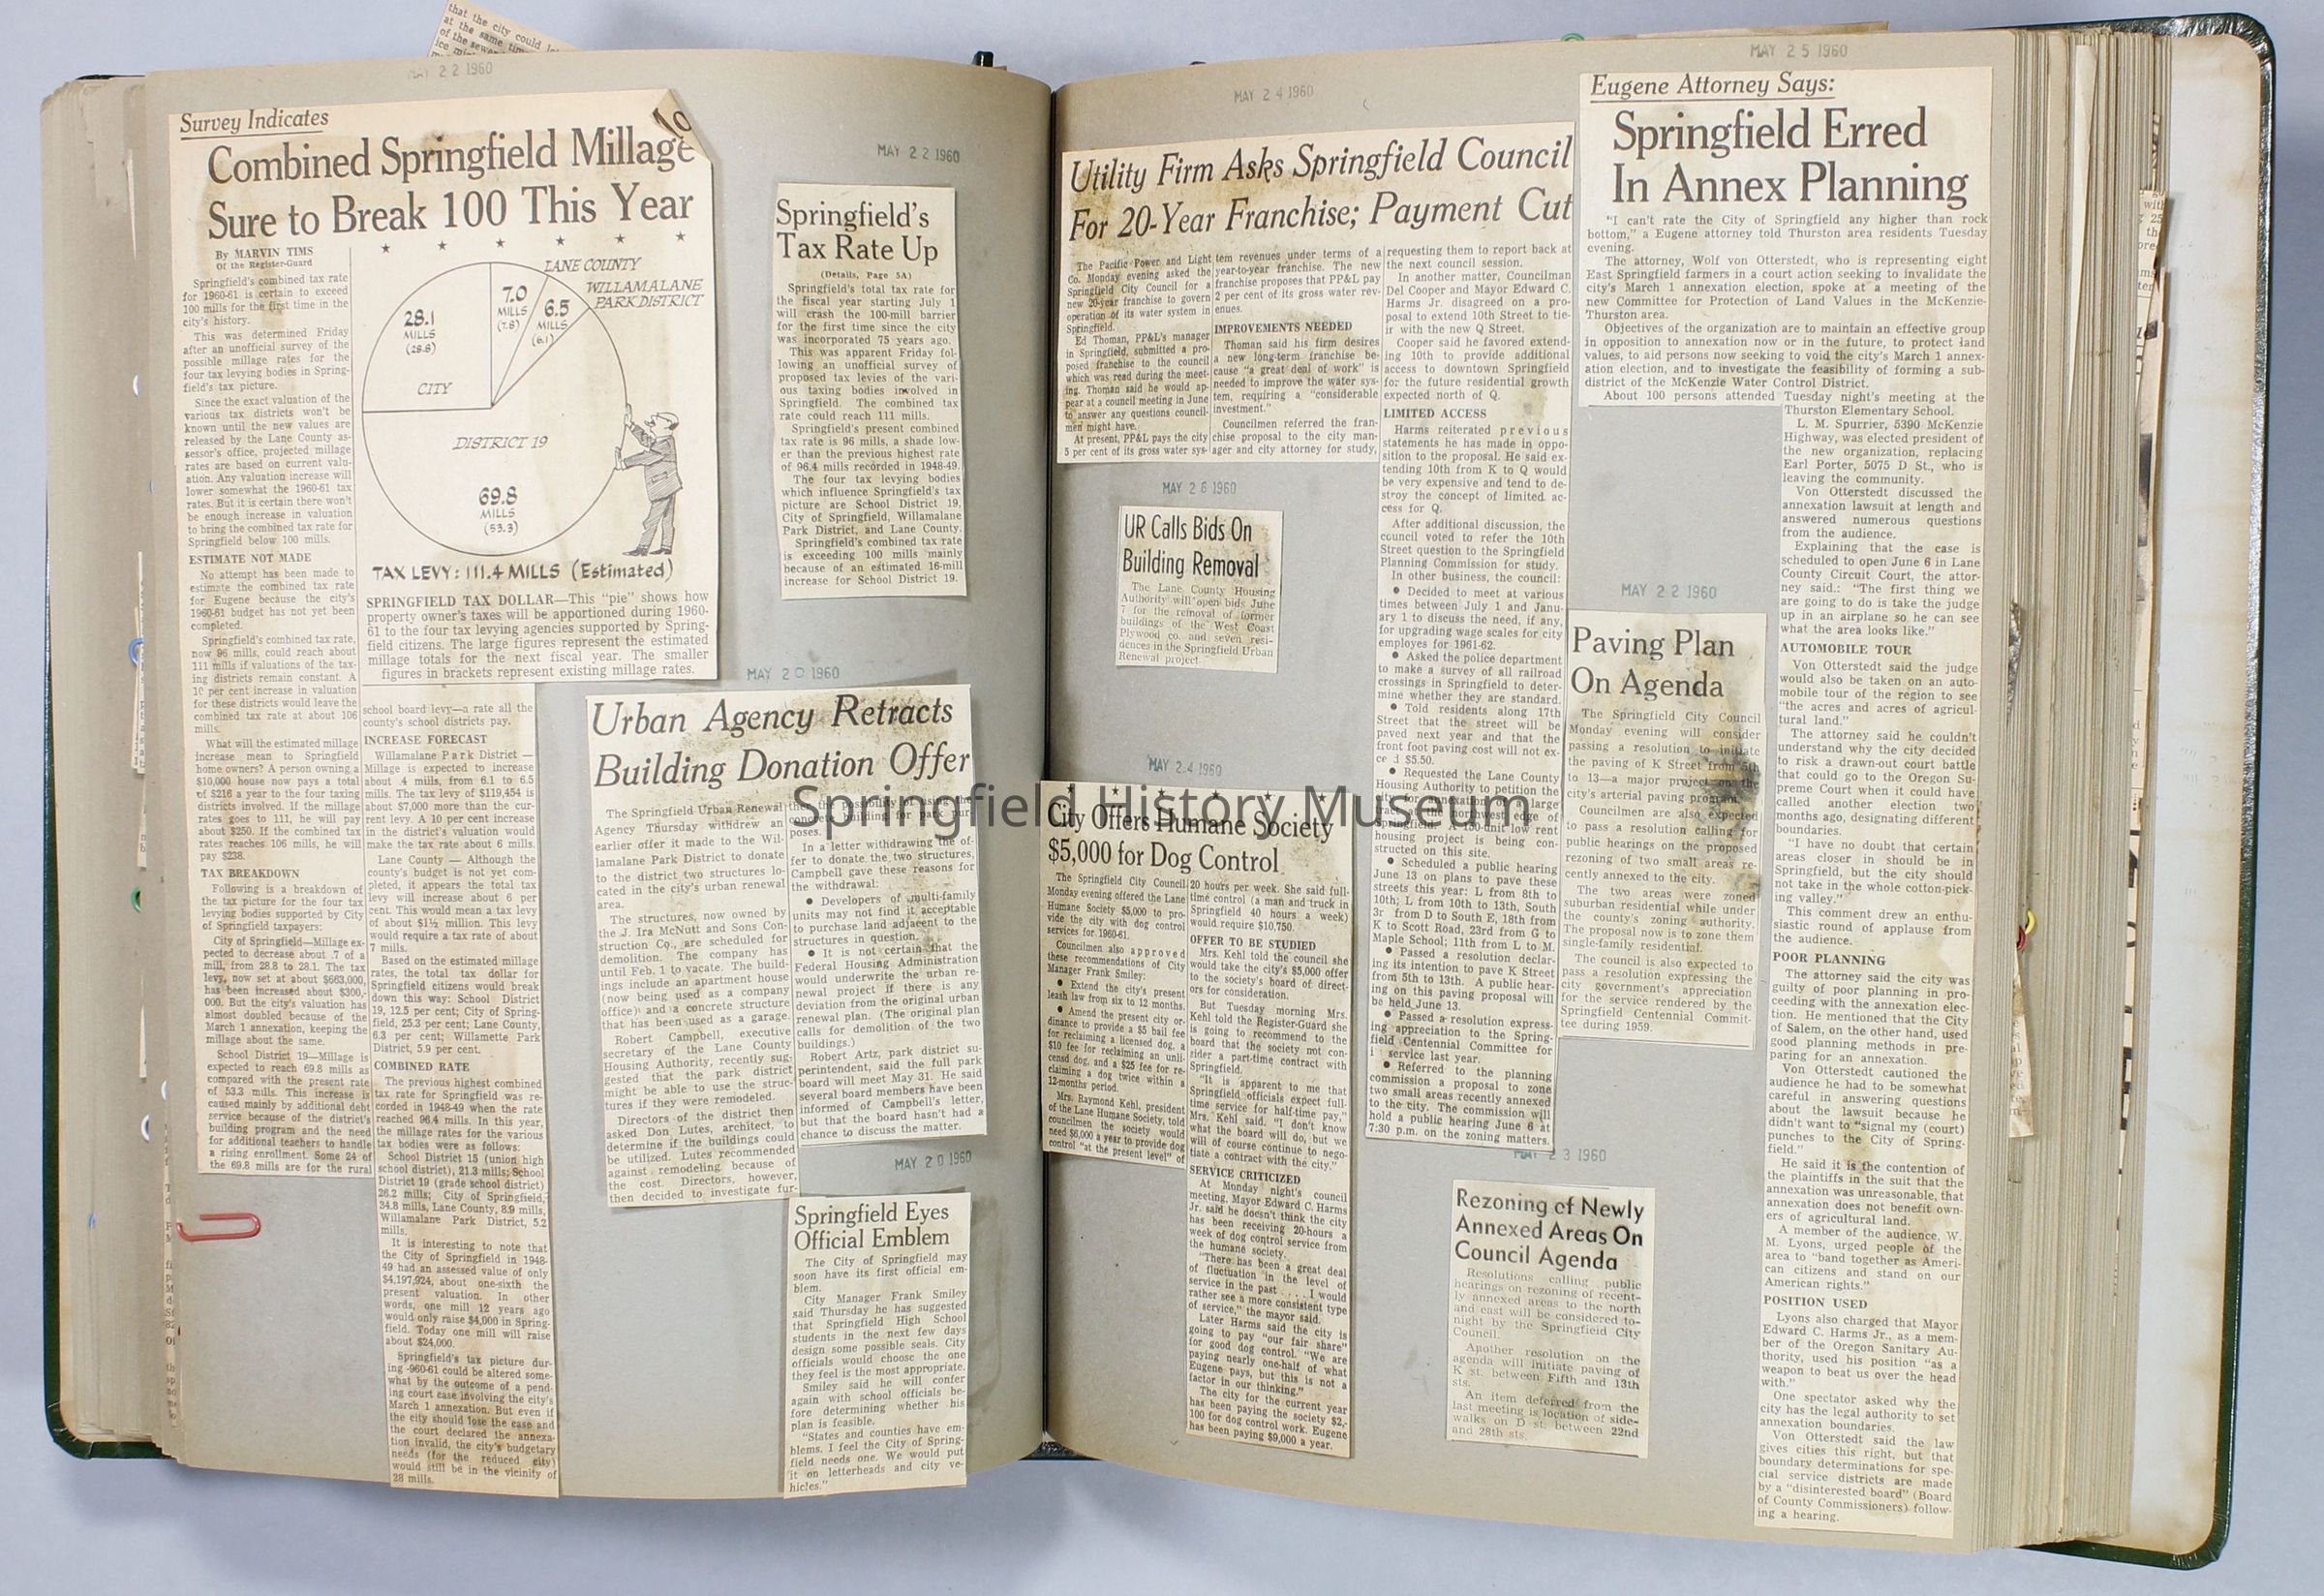 that the city could
at the same time
of the sewer
MAY 22 1960
Survey Indicates
Combined Springfield Millage
Sure to Break 100 This Year
By MARVIN TIMS
Of the Register-Guard
Springfield's combined tax rate
for 1960-61 is certain to exceed
100 mills for the first time in the
city's history.
This was determined Friday
after an unofficial survey of the
possible millage rates for the
four tax levying bodies in Spring-
field's tax picture.
Since the exact valuation of the
various tax districts won't be
known until the new values are
released by the Lane County as-
sessor's office, projected millage
rates are based on current valu-
ation. Any valuation increase will
lower somewhat the 1960-61 tax
rates. But it is certain there won't
be enough increase in valuation
to bring the combined tax rate for
Springfield below 100 mills.
ESTIMATE NOT MADE
No attempt has been made to
estimate the combined tax rate
for Eugene because the city's
1960-61 budget has not yet been
completed.
Springfield's combined tax rate,
now 96 mills, could reach about
111 mills if valuations of the tax-
ing districts remain constant. A
10 per cent increase in valuation
for these districts would leave the
combined tax rate at about 106
mills.
What will the estimated millage
increase mean to Springfield
home owners? A person owning a
$10,000 house now pays a total
of $216 a year to the four taxing
districts involved. If the millage
rates goes to 111, he will pay
about $250. If the combined tax
rates reaches 106 mills, he will
pay $238.
TAX BREAKDOWN
Following is a breakdown of
the tax picture for the four tax
levying bodies supported by City
of Springfield taxpayers:
City of Springfield—Millage ex-
pected to decrease about .7 of a
mill, from 28.8 to 28.1. The tax
levy, now set at about $663,000,
has been increased about $300,-
000. But the city's valuation has
almost doubled because of the
March 1 annexation, keeping the
millage about the same.
School District 19—Millage is
expected to reach 69.8 mills as
compared with the present rate
of 53.3 mills. This increase is
caused mainly by additional debt
service because of the district's
building program and the need
for additional teachers to handle
a rising enrollment. Some 24 of
the 69.8 mills are for the rural
LANE COUNTY
WILLAMALANE
PARK DISTRICT
7.0
MILLS
(7.8)
6.5
MILLS
(6.1)
28.1
MILLS
(28.8)
CITY
DISTRICT 19
69.8
MILLS
(53.3)
TAX LEVY: 111.4 MILLS (Estimated)
SPRINGFIELD TAX DOLLAR—This "pie" shows how
property owner's taxes will be apportioned during 1960-
61 to the four tax levying agencies supported by Spring-
field citizens. The large figures represent the estimated
millage totals for the next fiscal year. The smaller
figures in brackets represent existing millage rates.
school board levy—a rate all the
county's school districts pay.
INCREASE FORECAST
Willamalane Park District —
Millage is expected to increase
about .4 mills, from 6.1 to 6.5
mills. The tax levy of $119,454 is
about $7,000 more than the cur-
rent levy. A 10 per cent increase
in the district's valuation would
make the tax rate about 6 mills.
Lane County — Although the
county's budget is not yet com-
pleted, it appears the total tax
levy will increase about 6 per
cent. This would mean a tax levy
of about $1½ million. This levy
would require a tax rate of about
7 mills.
Based on the estimated millage
rates, the total tax dollar for
Springfield citizens would break
down this way: School District
19, 12.5 per cent; City of Spring-
field, 25.3 per cent; Lane County,
6.3 per cent; Willamette Park
District, 5.9 per cent.
COMBINED RATE
The previous highest combined
tax rate for Springfield was re-
corded in 1948-49 when the rate
reached 96.4 mills. In this year,
the millage rates for the various
tax bodies were as follows:
School District 15 (union high
school district), 21.3 mills; School
District 19 (grade school district)
26.2 mills; City of Springfield,
34.8 mills, Lane County, 8.9 mills,
Willamalane Park District, 5.2
mills.
It is interesting to note that
the City of Springfield in 1948-
49 had an assessed value of only
$4,197,924, about one-sixth the
present valuation. In other
words, one mill 12 years ago
would only raise $4,000 in Spring-
field. Today one mill will raise
about $24,000.
Springfield's tax picture dur-
ing 1960-61 could be altered some-
what by the outcome of a pend-
ing court case involving the city's
March 1 annexation. But even if
the city should lose the case and
the court declared the annexa-
tion invalid, the city's budgetary
needs (for the reduced city)
would still be in the vicinity of
28 mills.
MAY 22 1960
Springfield's
Tax Rate Up
(Details, Page 5A)
Springfield's total tax rate for
the fiscal year starting July 1
will crash the 100-mill barrier
for the first time since the city
was incorporated 75 years ago.
This was apparent Friday fol-
lowing an unofficial survey of
proposed tax levies of the vari-
ous taxing bodies involved in
Springfield. The combined tax
rate could reach 111 mills.
Springfield's present combined
tax rate is 96 mills, a shade low-
er than the previous highest rate
of 96.4 mills recorded in 1948-49.
The four tax levying bodies
which influence Springfield's tax
picture are School District 19,
City of Springfield, Willamalane
Park District, and Lane County.
Springfield's combined tax rate
is exceeding 100 mills mainly
because of an estimated 16-mill
increase for School District 19.
MAY 20 1960
Urban Agency Retracts
Building Donation Offer
The Springfield Urban Renewal
Agency Thursday withdrew an
earlier offer it made to the Wil-
lamalane Park District to donate
to the district two structures lo-
cated in the city's urban renewal
area.
The structures, now owned by
the J. Ira McNutt and Sons Con-
struction Co., are scheduled for
demolition. The company has
until Feb. 1 to vacate. The build-
ings include an apartment house
(now being used as a company
office) and a concrete structure
that has been used as a garage.
Robert Campbell, executive
secretary of the Lane County
Housing Authority, recently sug-
gested that the park district
might be able to use the struc-
tures if they were remodeled.
Directors of the district then
asked Don Lutes, architect, to
determine if the buildings could
be utilized. Lutes recommended
against remodeling because of
the cost. Directors, however,
then decided to investigate fur-
ther the possibility of using the
concrete building for park pur-
poses.
In a letter withdrawing the of-
fer to donate the two structures,
Campbell gave these reasons for
the withdrawal:
● Developers of multi-family
units may not find it acceptable
to purchase land adjacent to the
structures in question.
● It is not certain that the
Federal Housing Administration
would underwrite the urban re-
newal project if there is any
deviation from the original urban
renewal plan. (The original plan
calls for demolition of the two
buildings.)
Robert Artz, park district su-
perintendent, said the full park
board will meet May 31. He said
several board members have been
informed of Campbell's letter,
but that the board hasn't had a
chance to discuss the matter.
MAY 20 1960
Springfield Eyes
Official Emblem
The City of Springfield may
soon have its first official em-
blem.
City Manager Frank Smiley
said Thursday he has suggested
that Springfield High School
students in the next few days
design some possible seals. City
officials would choose the one
they feel is the most appropriate.
Smiley said he will confer
again with school officials be-
fore determining whether his
plan is feasible.
"States and counties have em-
blems. I feel the City of Spring-
field needs one. We would put
it on letterheads and city ve-
hicles."
MAY 24 1960
Utility Firm Asks Springfield Council
For 20-Year Franchise; Payment Cut
The Pacific Power and Light
Co. Monday evening asked the
Springfield City Council for a
new 20-year franchise to govern
operation of its water system in
Springfield.
Ed Thoman, PP&L's manager
in Springfield, submitted a pro-
posed franchise to the council
which was read during the meet-
ing. Thoman said he would ap-
pear at a council meeting in June
to answer any questions council-
men might have.
At present, PP&L pays the city
5 per cent of its gross water sys-
tem revenues under terms of a
year-to-year franchise. The new
franchise proposes that PP&L pay
2 per cent of its gross water rev-
enues.
IMPROVEMENTS NEEDED
Thoman said his firm desires
a new long-term franchise be-
cause "a great deal of work" is
needed to improve the water sys-
tem, requiring a "considerable
investment."
Councilmen referred the fran-
chise proposal to the city man-
ager and city attorney for study,
requesting them to report back at
the next council session.
In another matter, Councilman
Del Cooper and Mayor Edward C.
Harms Jr. disagreed on a pro-
posal to extend 10th Street to tie-
ir with the new Q Street.
Cooper said he favored extend-
ing 10th to provide additional
access to downtown Springfield
for the future residential growth
expected north of Q.
LIMITED ACCESS
Harms reiterated previous
statements he has made in oppo-
sition to the proposal. He said ex-
tending 10th from K to Q would
be very expensive and tend to de-
stroy the concept of limited ac-
cess for Q.
After additional discussion, the
council voted to refer the 10th
Street question to the Springfield
Planning Commission for study.
In other business, the council:
● Decided to meet at various
times between July 1 and Janu-
ary 1 to discuss the need, if any,
for upgrading wage scales for city
employes for 1961-62.
● Asked the police department
to make a survey of all railroad
crossings in Springfield to deter-
mine whether they are standard.
● Told residents along 17th
Street that the street will be
paved next year and that the
front foot paving cost will not ex-
ce d $5.50.
● Requested the Lane County
Housing Authority to petition the
city for annexation of a large
tract on the northwest edge of
Springfield. A 150-unit low rent
housing project is being con-
structed on this site.
● Scheduled a public hearing
June 13 on plans to pave these
streets this year: L from 8th to
10th; L from 10th to 13th, South
3r from D to South E, 18th from
K to Scott Road, 23rd from G to
Maple School; 11th from L to M.
● Passed a resolution declar-
ing its intention to pave K Street
from 5th to 13th. A public hear-
ing on this paving proposal will
be held June 13.
● Passed a resolution express-
ing appreciation to the Spring-
field Centennial Committee for
i service last year.
● Referred to the planning
commission a proposal to zone
two small areas recently annexed
to the city. The commission will
hold a public hearing June 6 at
7:30 p.m. on the zoning matters.
MAY 26 1960
UR Calls Bids On
Building Removal
The Lane County Housing
Authority will open bids June
7 for the removal of former
buildings of the West Coast
Plywood co. and seven resi-
dences in the Springfield Urban
Renewal project.
MAY 24 1960
City Offers Humane Society
$5,000 for Dog Control
The Springfield City Council
Monday evening offered the Lane
Humane Society $5,000 to pro-
vide the city with dog control
services for 1960-61.
Councilmen also approved
these recommendations of City
Manager Frank Smiley:
● Extend the city's present
leash law from six to 12 months.
● Amend the present city or-
dinance to provide a $5 bail fee
for reclaiming a licensed dog, a
$10 fee for reclaiming an unli-
censed dog, and a $25 fee for re-
claiming a dog twice within a
12-months period.
Mrs. Raymond Kehl, president
of the Lane Humane Society, told
councilmen the society would
need $6,000 a year to provide dog
control "at the present level" of
20 hours per week. She said full-
time control (a man and truck in
Springfield 40 hours a week)
would require $10,750.
OFFER TO BE STUDIED
Mrs. Kehl told the council she
would take the city's $5,000 offer
to the society's board of direct-
ors for consideration.
But Tuesday morning Mrs.
Kehl told the Register-Guard she
is going to recommend to the
board that the society not con-
sider a part-time contract with
Springfield.
"It is apparent to me that
Springfield officials expect full-
time service for half-time pay,"
Mrs. Kehl said. "I don't know
what the board will do, but we
will of course continue to nego-
tiate a contract with the city."
SERVICE CRITICIZED
At Monday night's council
meeting, Mayor Edward C. Harms
Jr. said he doesn't think the city
has been receiving 20-hours a
week of dog control service from
the humane society.
"There has been a great deal
of fluctuation in the level of
service in the past . . . . I would
rather see a more consistent type
of service," the mayor said.
Later Harms said the city is
going to pay "our fair share"
for good dog control. "We are
paying nearly one-half of what
Eugene pays, but this is not a
factor in our thinking."
The city for the current year
has been paying the society $2,-
100 for dog control work. Eugene
has been paying $9,000 a year.
MAY 25 1960
Eugene Attorney Says:
Springfield Erred
In Annex Planning
"I can't rate the City of Springfield any higher than rock
bottom," a Eugene attorney told Thurston area residents Tuesday
evening.
The attorney, Wolf von Otterstedt, who is representing eight
East Springfield farmers in a court action seeking to invalidate the
city's March 1 annexation election, spoke at a meeting of the
new Committee for Protection of Land Values in the McKenzie-
Thurston area.
Objectives of the organization are to maintain an effective group
in opposition to annexation now or in the future, to protect land
values, to aid persons now seeking to void the city's March 1 annex-
ation election, and to investigate the feasibility of forming a sub-
district of the McKenzie Water Control District.
About 100 persons attended Tuesday night's meeting at the
Thurston Elementary School.
L. M. Spurrier, 5390 McKenzie
Highway, was elected president of
the new organization, replacing
Earl Porter, 5075 D St., who is
leaving the community.
Von Otterstedt discussed the
annexation lawsuit at length and
answered numerous questions
from the audience.
Explaining that the case is
scheduled to open June 6 in Lane
County Circuit Court, the attor-
ney said.: "The first thing we
are going to do is take the judge
up in an airplane so he can see
what the area looks like."
AUTOMOBILE TOUR
Von Otterstedt said the judge
would also be taken on an auto-
mobile tour of the region to see
"the acres and acres of agricul-
tural land."
The attorney said he couldn't
understand why the city decided
to risk a drawn-out court battle
that could go to the Oregon Su-
preme Court when it could have
called another election two
months ago, designating different
boundaries.
"I have no doubt that certain
areas closer in should be in
Springfield, but the city should
not take in the whole cotton-pick-
ing valley."
This comment drew an enthu-
siastic round of applause from
the audience.
POOR PLANNING
The attorney said the city was
guilty of poor planning in pro-
ceeding with the annexation elec-
tion. He mentioned that the City
of Salem, on the other hand, used
good planning methods in pre-
paring for an annexation.
Von Otterstedt cautioned the
audience he had to be somewhat
careful in answering questions
about the lawsuit because he
didn't want to "signal my (court)
punches to the City of Spring-
field."
He said it is the contention of
the plaintiffs in the suit that the
annexation was unreasonable, that
annexation does not benefit own-
ers of agricultural land.
A member of the audience, W.
M. Lyons, urged people of the
area to "band together as Ameri-
can citizens and stand on our
American rights."
POSITION USED
Lyons also charged that Mayor
Edward C. Harms Jr., as a mem-
ber of the Oregon Sanitary Au-
thority, used his position "as a
weapon to beat us over the head
with."
One spectator asked why the
city has the legal authority to set
annexation boundaries.
Von Otterstedt said the law
gives cities this right, but that
boundary determinations for spe-
cial service districts are made
by a "disinterested board" (Board
of County Commissioners) follow-
ing a hearing.
MAY 22 1960
Paving Plan
On Agenda
The Springfield City Council
Monday evening will consider
passing a resolution to initiate
the paving of K Street from 5th
to 13—a major project on the
city's arterial paving program.
Councilmen are also expected
to pass a resolution calling for
public hearings on the proposed
rezoning of two small areas re-
cently annexed to the city.
The two areas were zoned
suburban residential while under
the county's zoning authority.
The proposal now is to zone them
single-family residential.
The council is also expected to
pass a resolution expressing the
city government's appreciation
for the service rendered by the
Springfield Centennial Commit-
tee during 1959.
MAY 23 1960
Rezoning of Newly
Annexed Areas On
Council Agenda
Resolutions calling public
hearings on rezoning of recent-
ly annexed areas to the north
and east will be considered to-
night by the Springfield City
Council.
Another resolution on the
agenda will initiate paving of
K st. between Fifth and 13th
sts.
An item deferred from the
last meeting is location of side-
walks on D st. between 22nd
and 28th sts.
Springfield History Museum